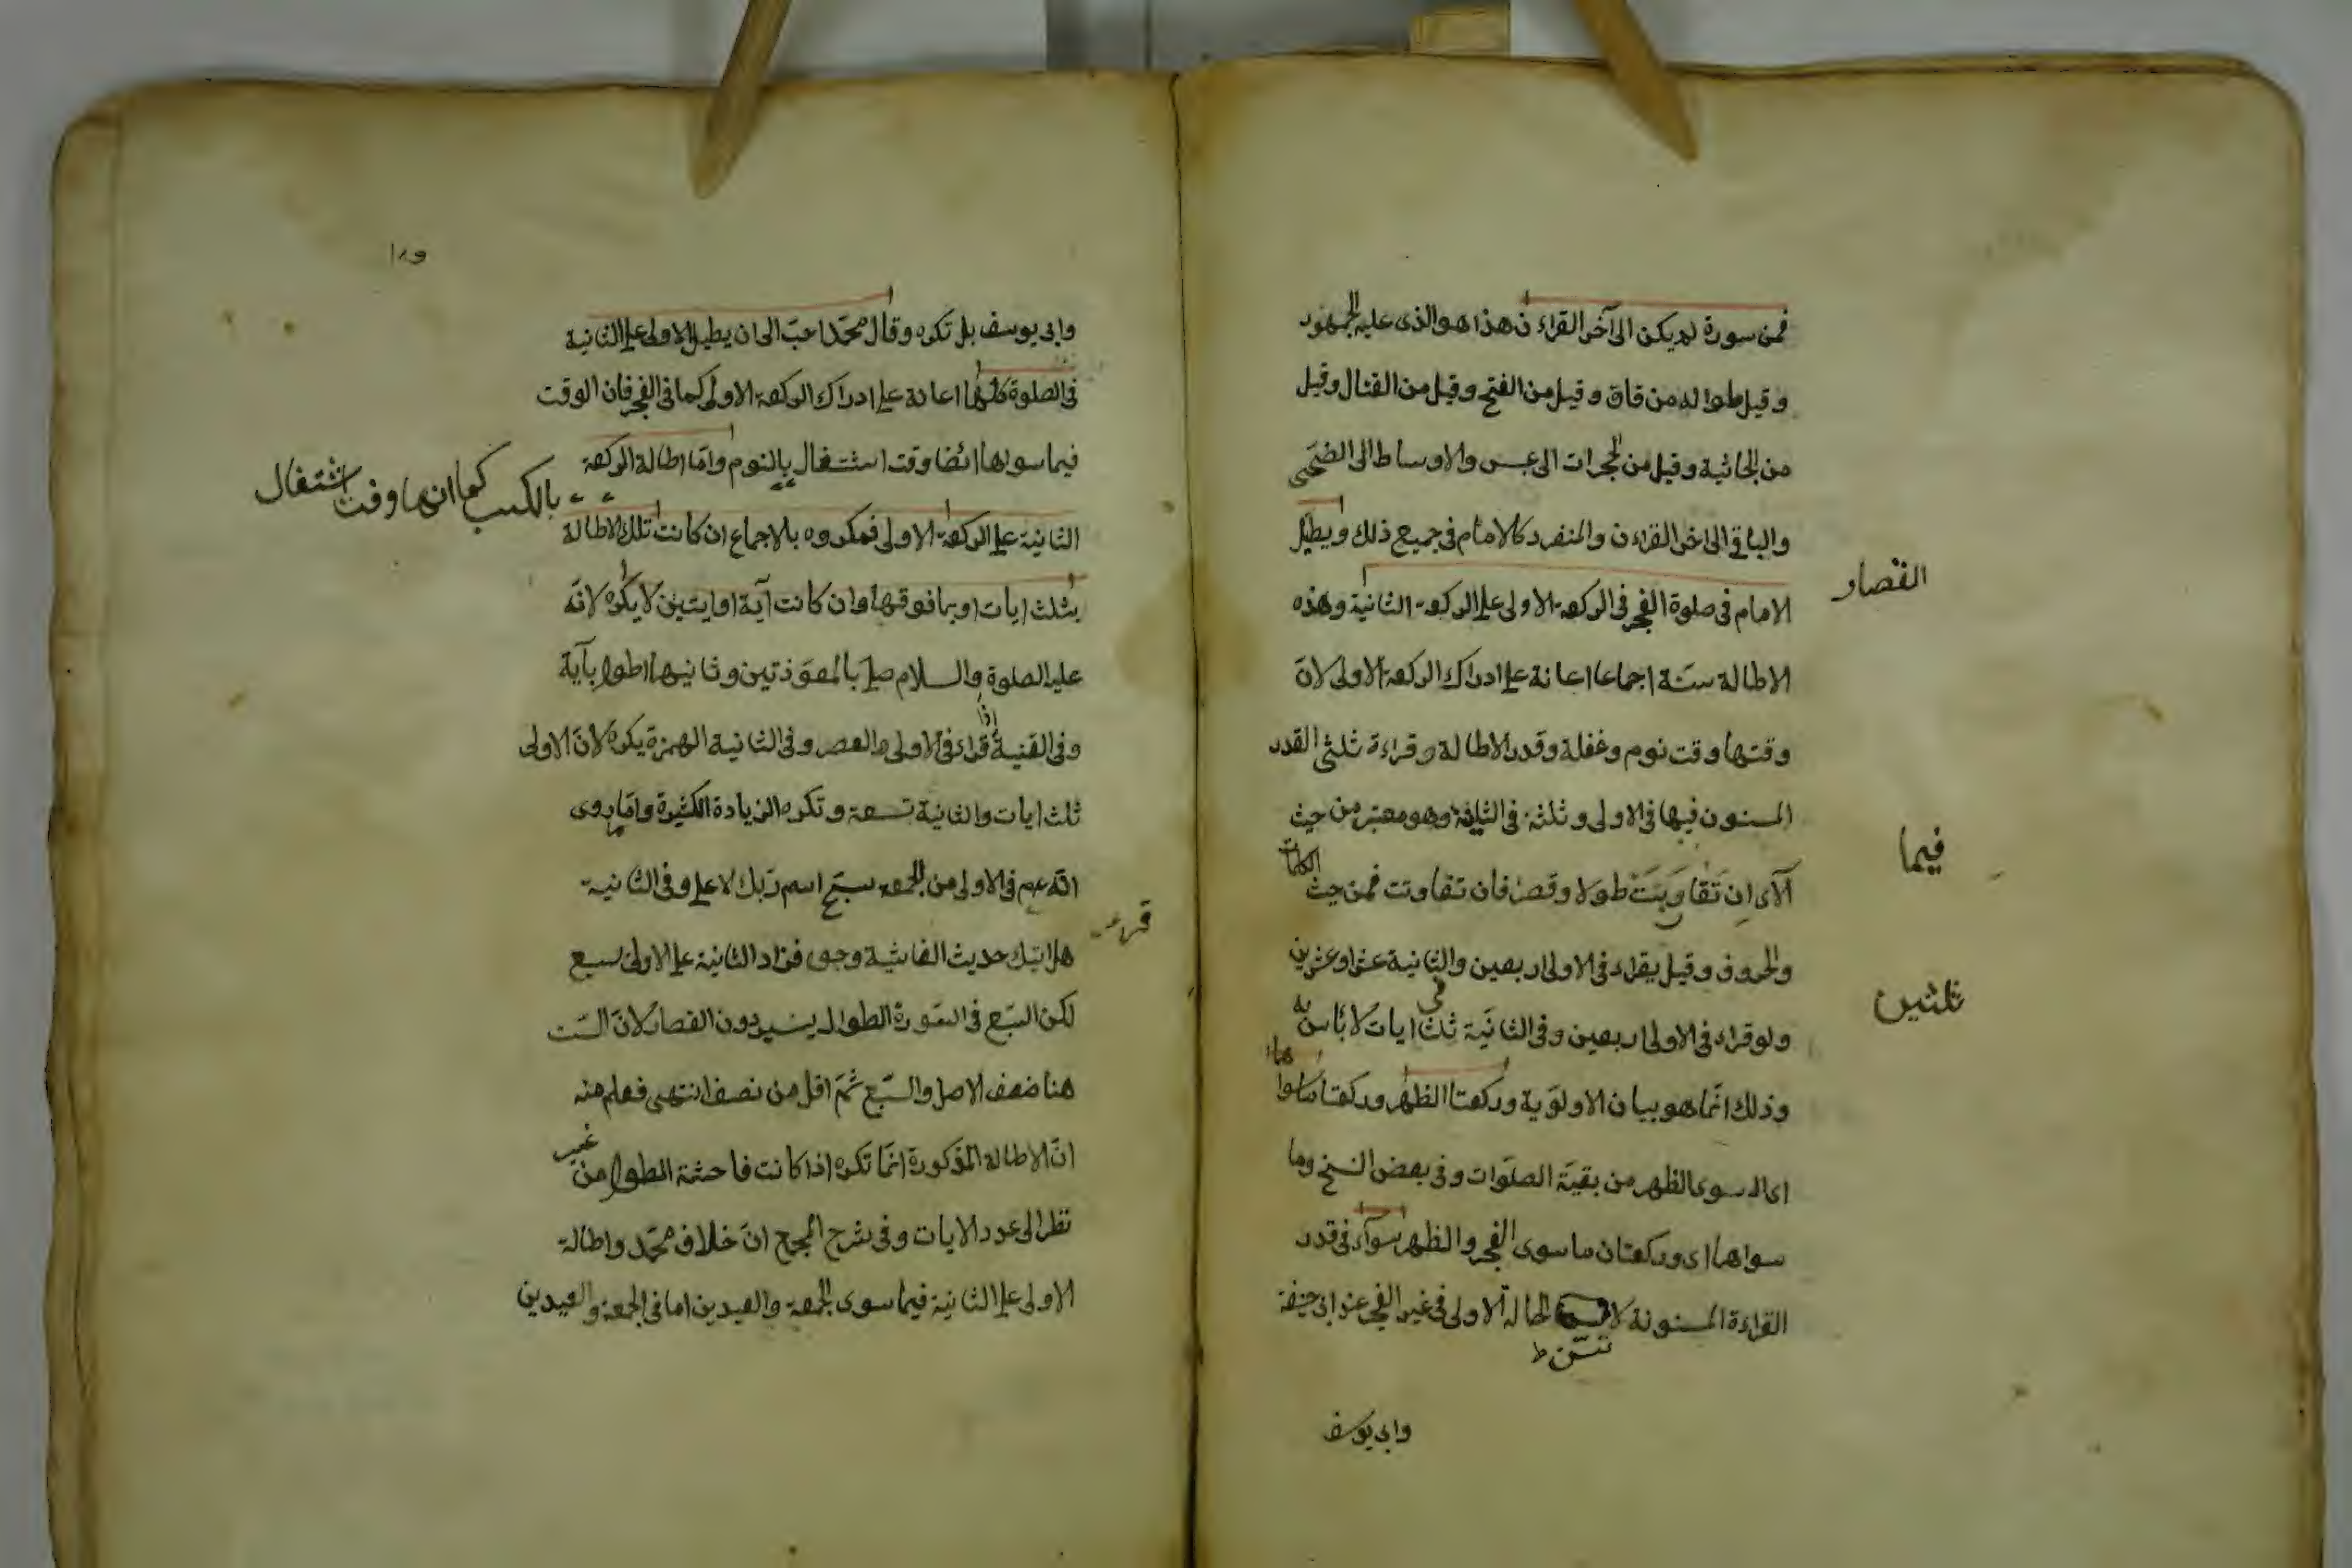 فمن سورة لم يكن الى آخر القراءن هذا هو الذى عليه الجمهور
وقيل طواله من قاق وقيل من الفتح وقيل من القتال وقيل
من الجاثية وقيل من الحجرات الى عبس والاوساط الى الضحى
والباقى الى اخر القراءن والمنفرد كالامام فى جميع ذلك ويطيل
القصار
الامام فى صلوة الفجر فى الركعة الاولى على الركعة الثانية وهذه
الاطالة سنة اجماعا اعانة على ادراك الركعة الاولى لانّ
وقتها وقت نوم وغفلة وقدر الاطالة وقراءة ثلثى القدر
المسنون فيها فى الاولى وثلثه فى الثانية وهو معتبر من حيث
فيما
الآى ان تقاربت طولا وقصرا فان تفاوتت فمن حيث الكلمات
والحروف وقيل يقراء فى الاولى اربعين والثانية عشرا وعشرين
ثلثين
ولو قراء فى الاولى اربعين وفى الثانية ثلث ايات لا باس به
وذلك انّما هو بيان الاولوية وركعتا الظهر وركعتا ما سواها
اى ال سوى الظهر من بقيّة الصلوات وفى بعض النسخ وما
سواها اى وركعتان ما سوى الفجر والظهر سوآء فى قدر
القراءة المسنونة لا اطالة الاولى فى غير الفجر عند ابى حنيفة
تسن ط
وابى يوسف
وابى يوسف بل تكره وقال محمّد احبّ الى ان يطيل الاولى على الثانية
فى الصلوة كلّها اعانة على ادراك الركعة الاولى كما فى الفجر فان الوقت
فيما سواها ايضا وقت اشتغال بالنوم وامّا اطالة الركعة
بالكسب كما انها وقت اشتغال
الثانية على الركعة الاولى فمكروه بالاجماع ان كانت تلك الاطالة
بثلث ايات او بما فوقها وان كانت آية او ايتين لا يكره لانّه
عليه الصلوة والسلام صلى بالمعوّذتين وثانيها اطول بآية
وفى القنية اذا قراء فى الاولى والعصر وفى الثانية الهمزة يكره لانّ الاولى
ثلث ايات والثانية تسعة وتكره الزيادة الكثيرة وامّا روى
انّه عم فى الاولى من الجمعة سبّح اسم ربّك الاعلى وفى الثانية
قرء
هل اتيك حديث الغاشية وجوه فزاد الثانية على الاولى بسبع
لكن السّبع فى السّورة الطوال يسير دون القصار لانّ الستّ
هنا ضعف الاصل والسّبع ثمّ اقل من نصف انتهى فعلم منه
انّ الاطالة المذكورة انّما تكره اذا كانت فاحشة الطول من غير
نظر الى عدد الايات وفى شرح المجمع انّ خلاف محمّد واطالة
الاولى على الثانية فيما سوى الجمعة والعيدين اما فى الجمعة والعيدين